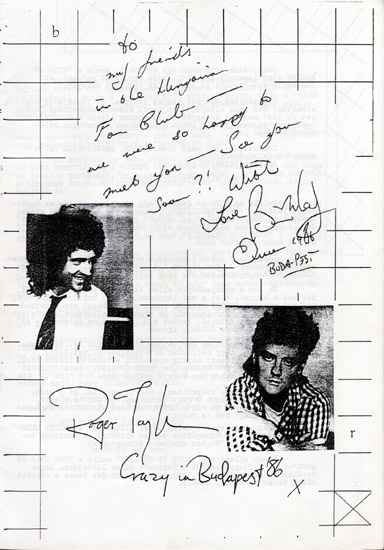 b
to
my friends
in the Hungarian
Fan Club —
we were so happy to
meet you — See you
soon?! With
Love Bri May
Queen 1986
BUDA-PEST.
Roger Taylor
Crazy in Budapest '86
X
r